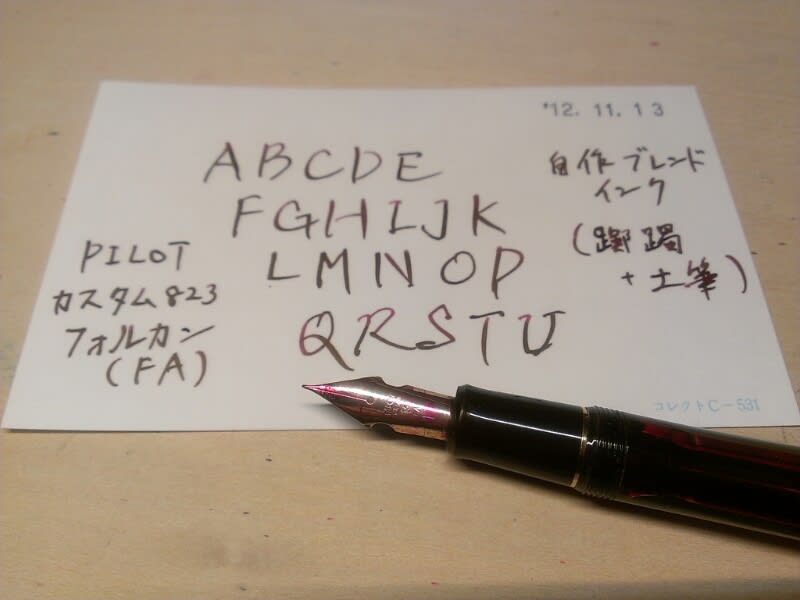 '12.11.13
ABCDE
FGHIJK
LMNOP
QRSTU
自作ブレンド
インク
(躑躅
+土筆)
PILOT
カスタム823
フォルカン
(FA)
コレクトC-531